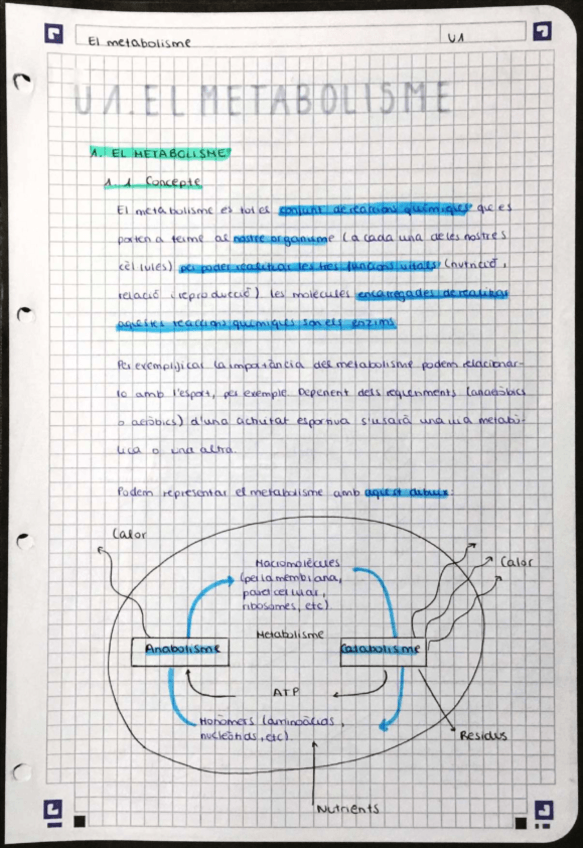 El metabolisme
U1
U1. EL METABOLISME
1. EL METABOLISME
1.1 Concepte
El metabolisme és tot el conjunt de reaccions químiques que es
porten a terme al nostre organisme (a cada una de les nostres
cèl·lules) per poder realitzar les tres funcions vitals (nutrició,
relació i reproducció). les molècules encarregades de realitzar
aquestes reaccions químiques son els enzims.
Per exemplificar la importància del metabolisme podem relacionar-
lo amb l'esport, per exemple. Depenent dels requeriments (anaeròbics
o aeròbics) d'una activitat esportiva s'usarà una via metabò-
lica o una altra.
Podem representar el metabolisme amb aquest dibuix:
Calor
Macromolècules
(per la membrana,
paret cel·lular,
ribosomes, etc)
Calor
Metabolisme
Anabolisme
Catabolisme
ATP
Monòmers (aminoàcids,
nucleòtids, etc).
Residus
Nutrients